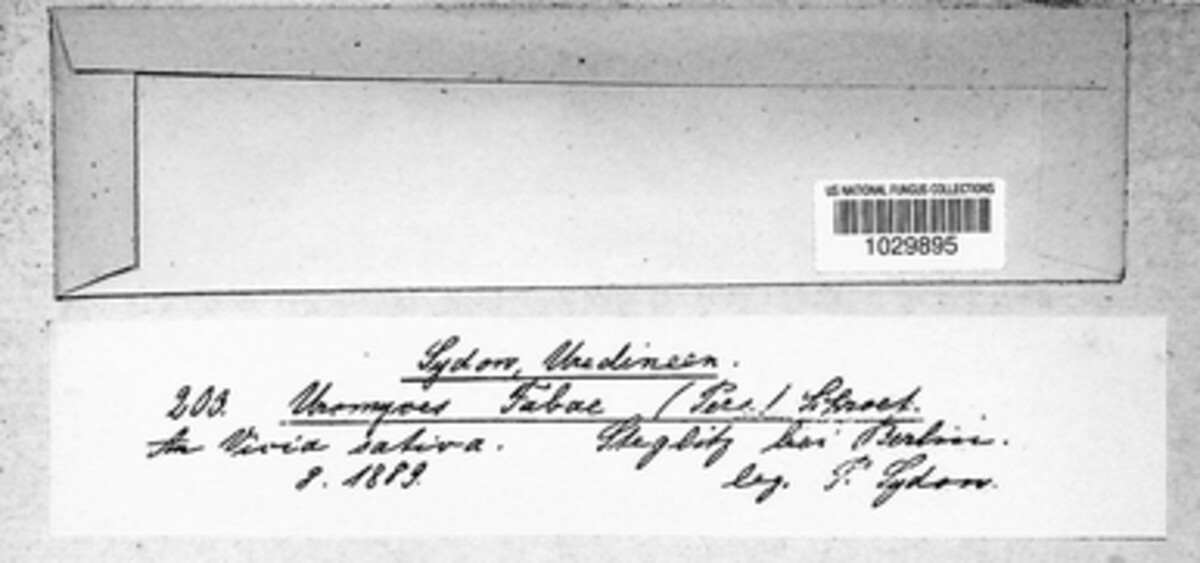 US NATIONAL FUNGUS COLLECTIONS
1029895
Sydow, Uredineen.
203. Uromyces Fabae (Pers.) Schroet.
An Vicia sativa. Steglitz bei Berlin.
8. 1889. leg. P. Sydow.